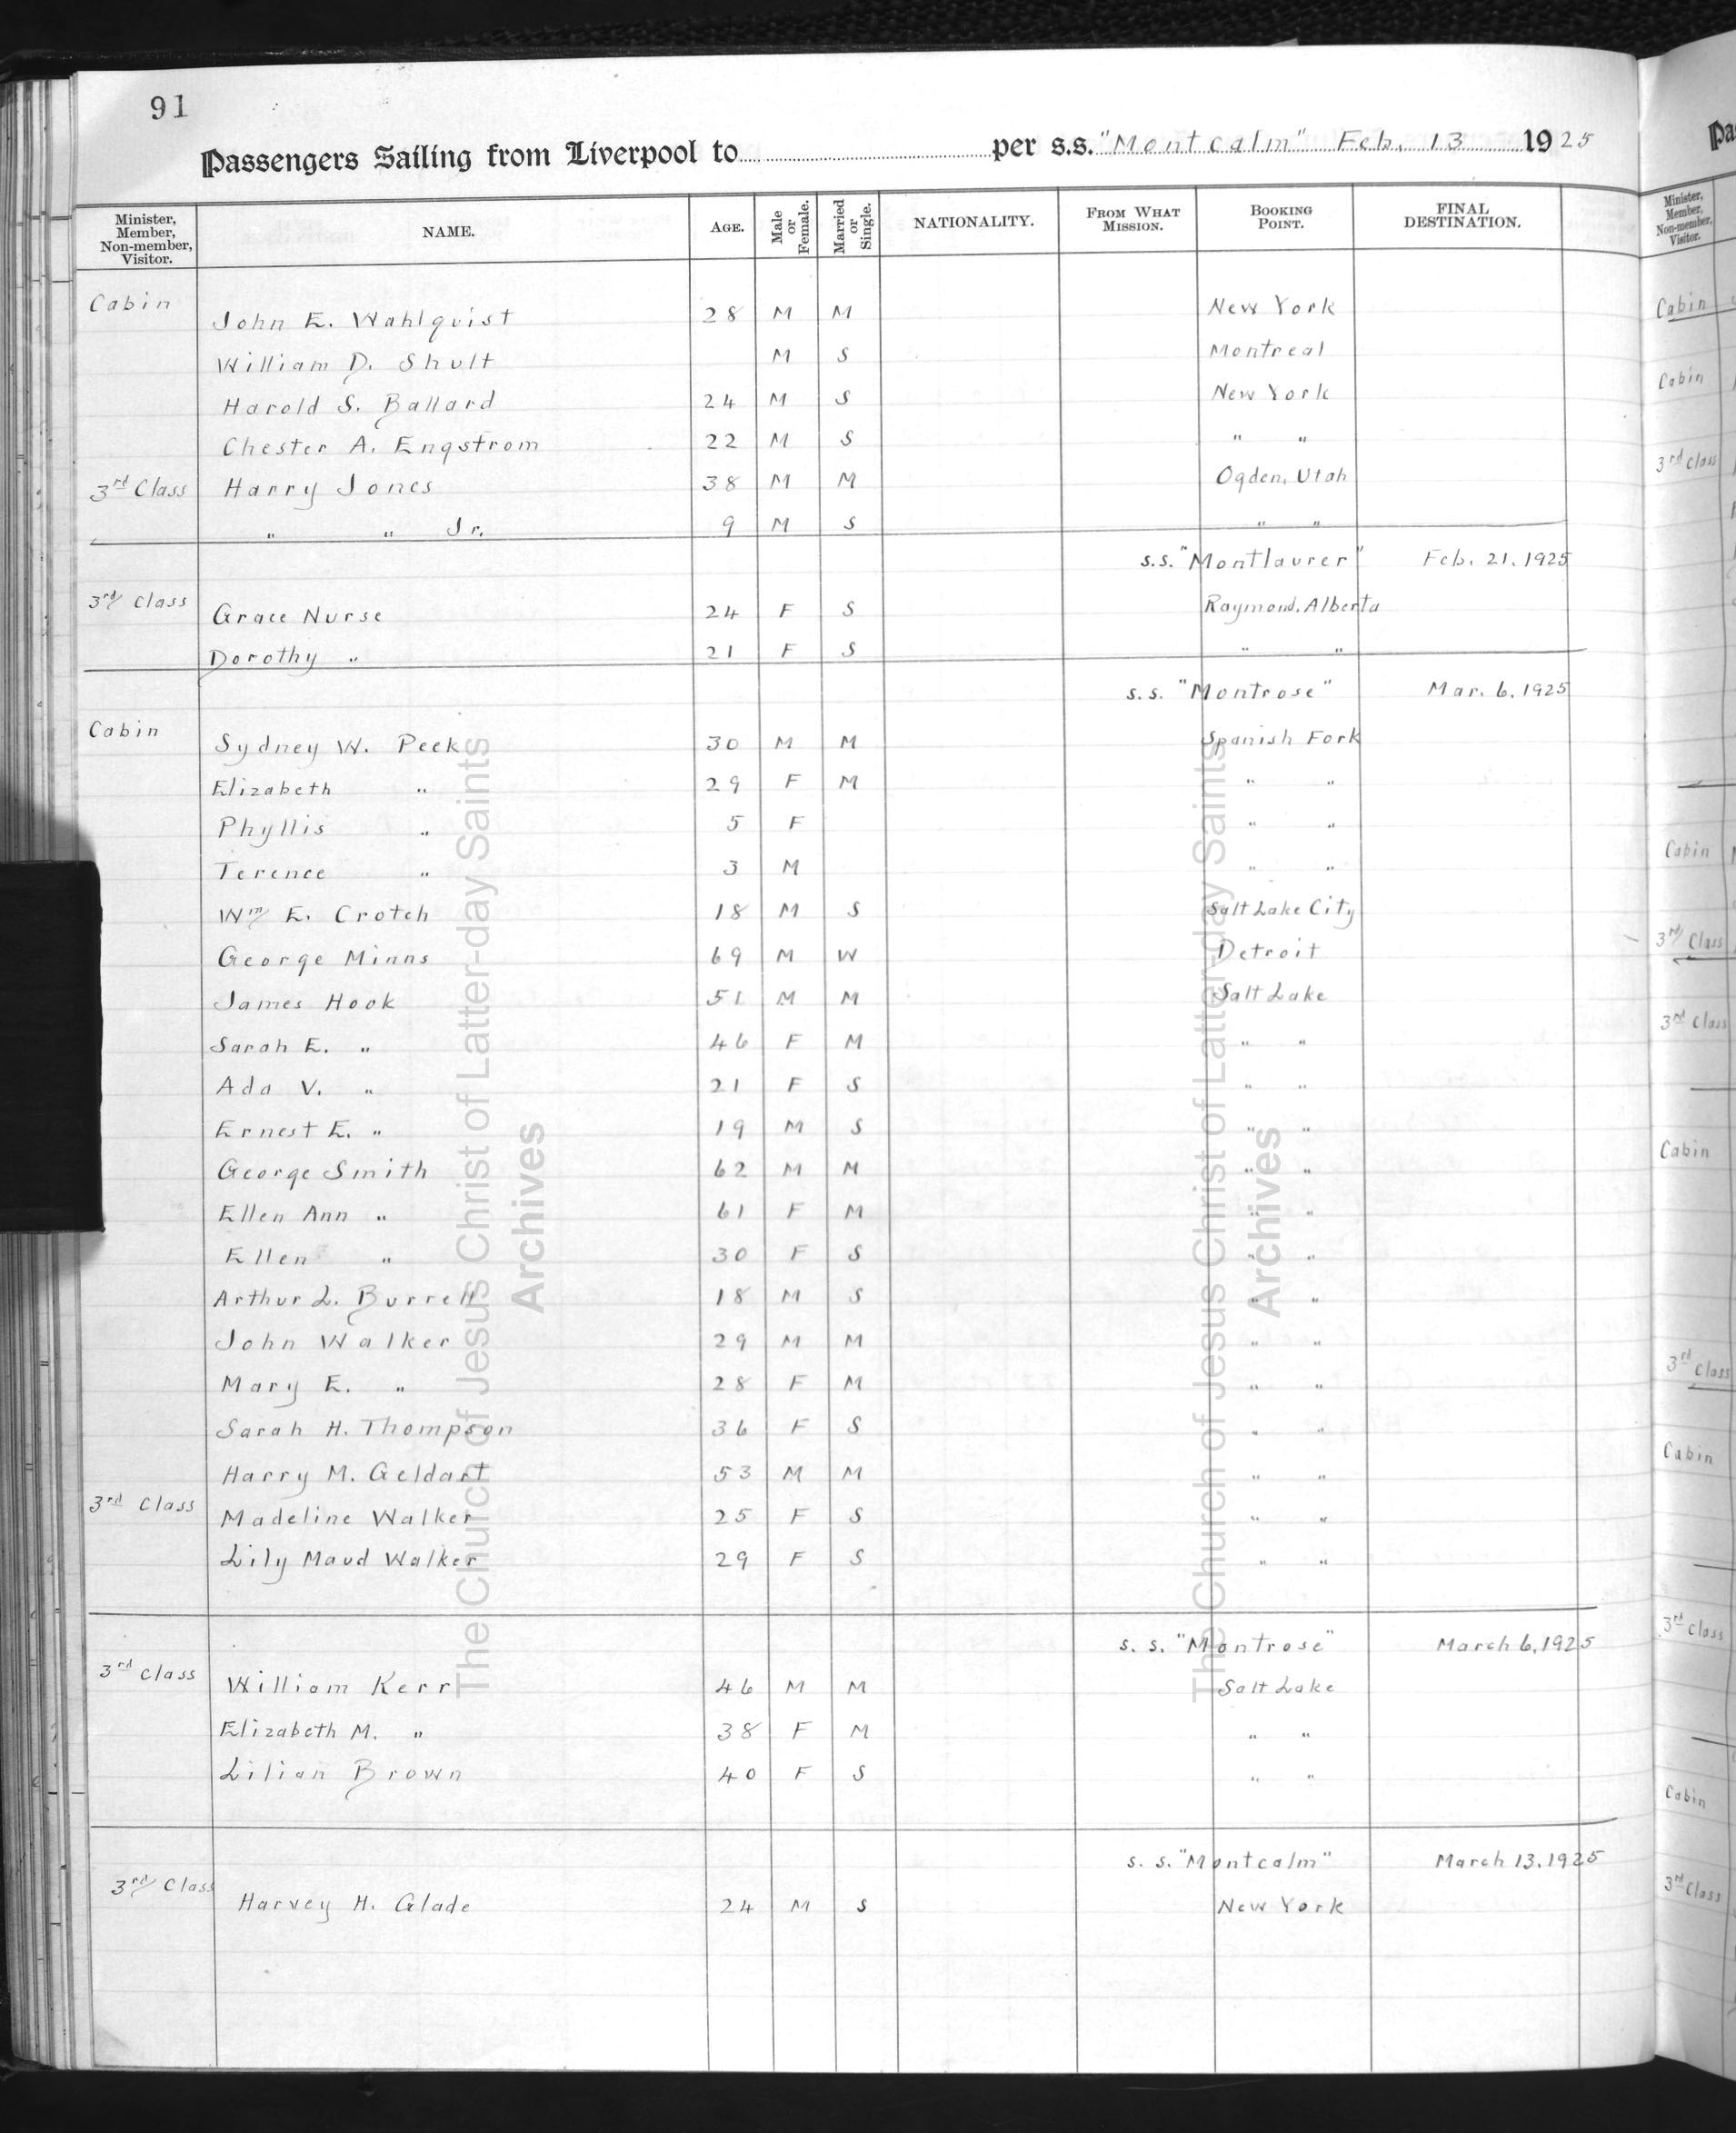 91
Passengers Sailing from Liverpool to per s.s. "Montcalm" Feb. 13 1925
Minister, Member, Non-member, Visitor. NAME. AGE. Male or Female. Married or Single. NATIONALITY. FROM WHAT MISSION. BOOKING POINT. FINAL DESTINATION.
Cabin John E. Wahlquist 28 M M New York
William D. Shult M S Montreal
Harold S. Ballard 24 M S New York
Chester A. Engstrom 22 M S " "
3rd Class Harry Jones 38 M M Ogden, Utah
" " Jr. 9 M S " "
s.s. "Montlaurer" Feb. 21. 1925
3rd Class Grace Nurse 24 F S Raymond, Alberta
Dorothy " 21 F S " "
s.s. "Montrose" Mar. 6. 1925
Cabin Sydney W. Peek 30 M M Spanish Fork
Elizabeth " 29 F M " "
Phyllis " 5 F " "
Terence " 3 M " "
Wm E. Crotch 18 M S Salt Lake City
George Minns 69 M W Detroit
James Hook 51 M M Salt Lake
Sarah E. " 46 F M " "
Ada V. " 21 F S " "
Ernest E. " 19 M S " "
George Smith 62 M M " "
Ellen Ann " 61 F M " "
Ellen " 30 F S " "
Arthur L. Burrell 18 M S " "
John Walker 29 M M " "
Mary E. " 28 F M " "
Sarah H. Thompson 36 F S " "
Harry M. Geldart 53 M M " "
3rd Class Madeline Walker 25 F S " "
Lily Maud Walker 29 F S " "
s. s. "Montrose" March 6, 1925
3rd Class William Kerr 46 M M Salt Lake
Elizabeth M. " 38 F M " "
Lilian Brown 40 F S " "
s. s. "Montcalm" March 13. 1925
3rd Class Harvey H. Glade 24 M S New York
The Church of Jesus Christ of Latter-day Saints
Archives
The Church of Jesus Christ of Latter-day Saints
Archives
Pa
Minister, Member, Non-member, Visitor.
Cabin
Cabin
3rd Class
Cabin
3rd Class
3rd Class
Cabin
3rd Class
Cabin
3rd Class
Cabin
3rd Class